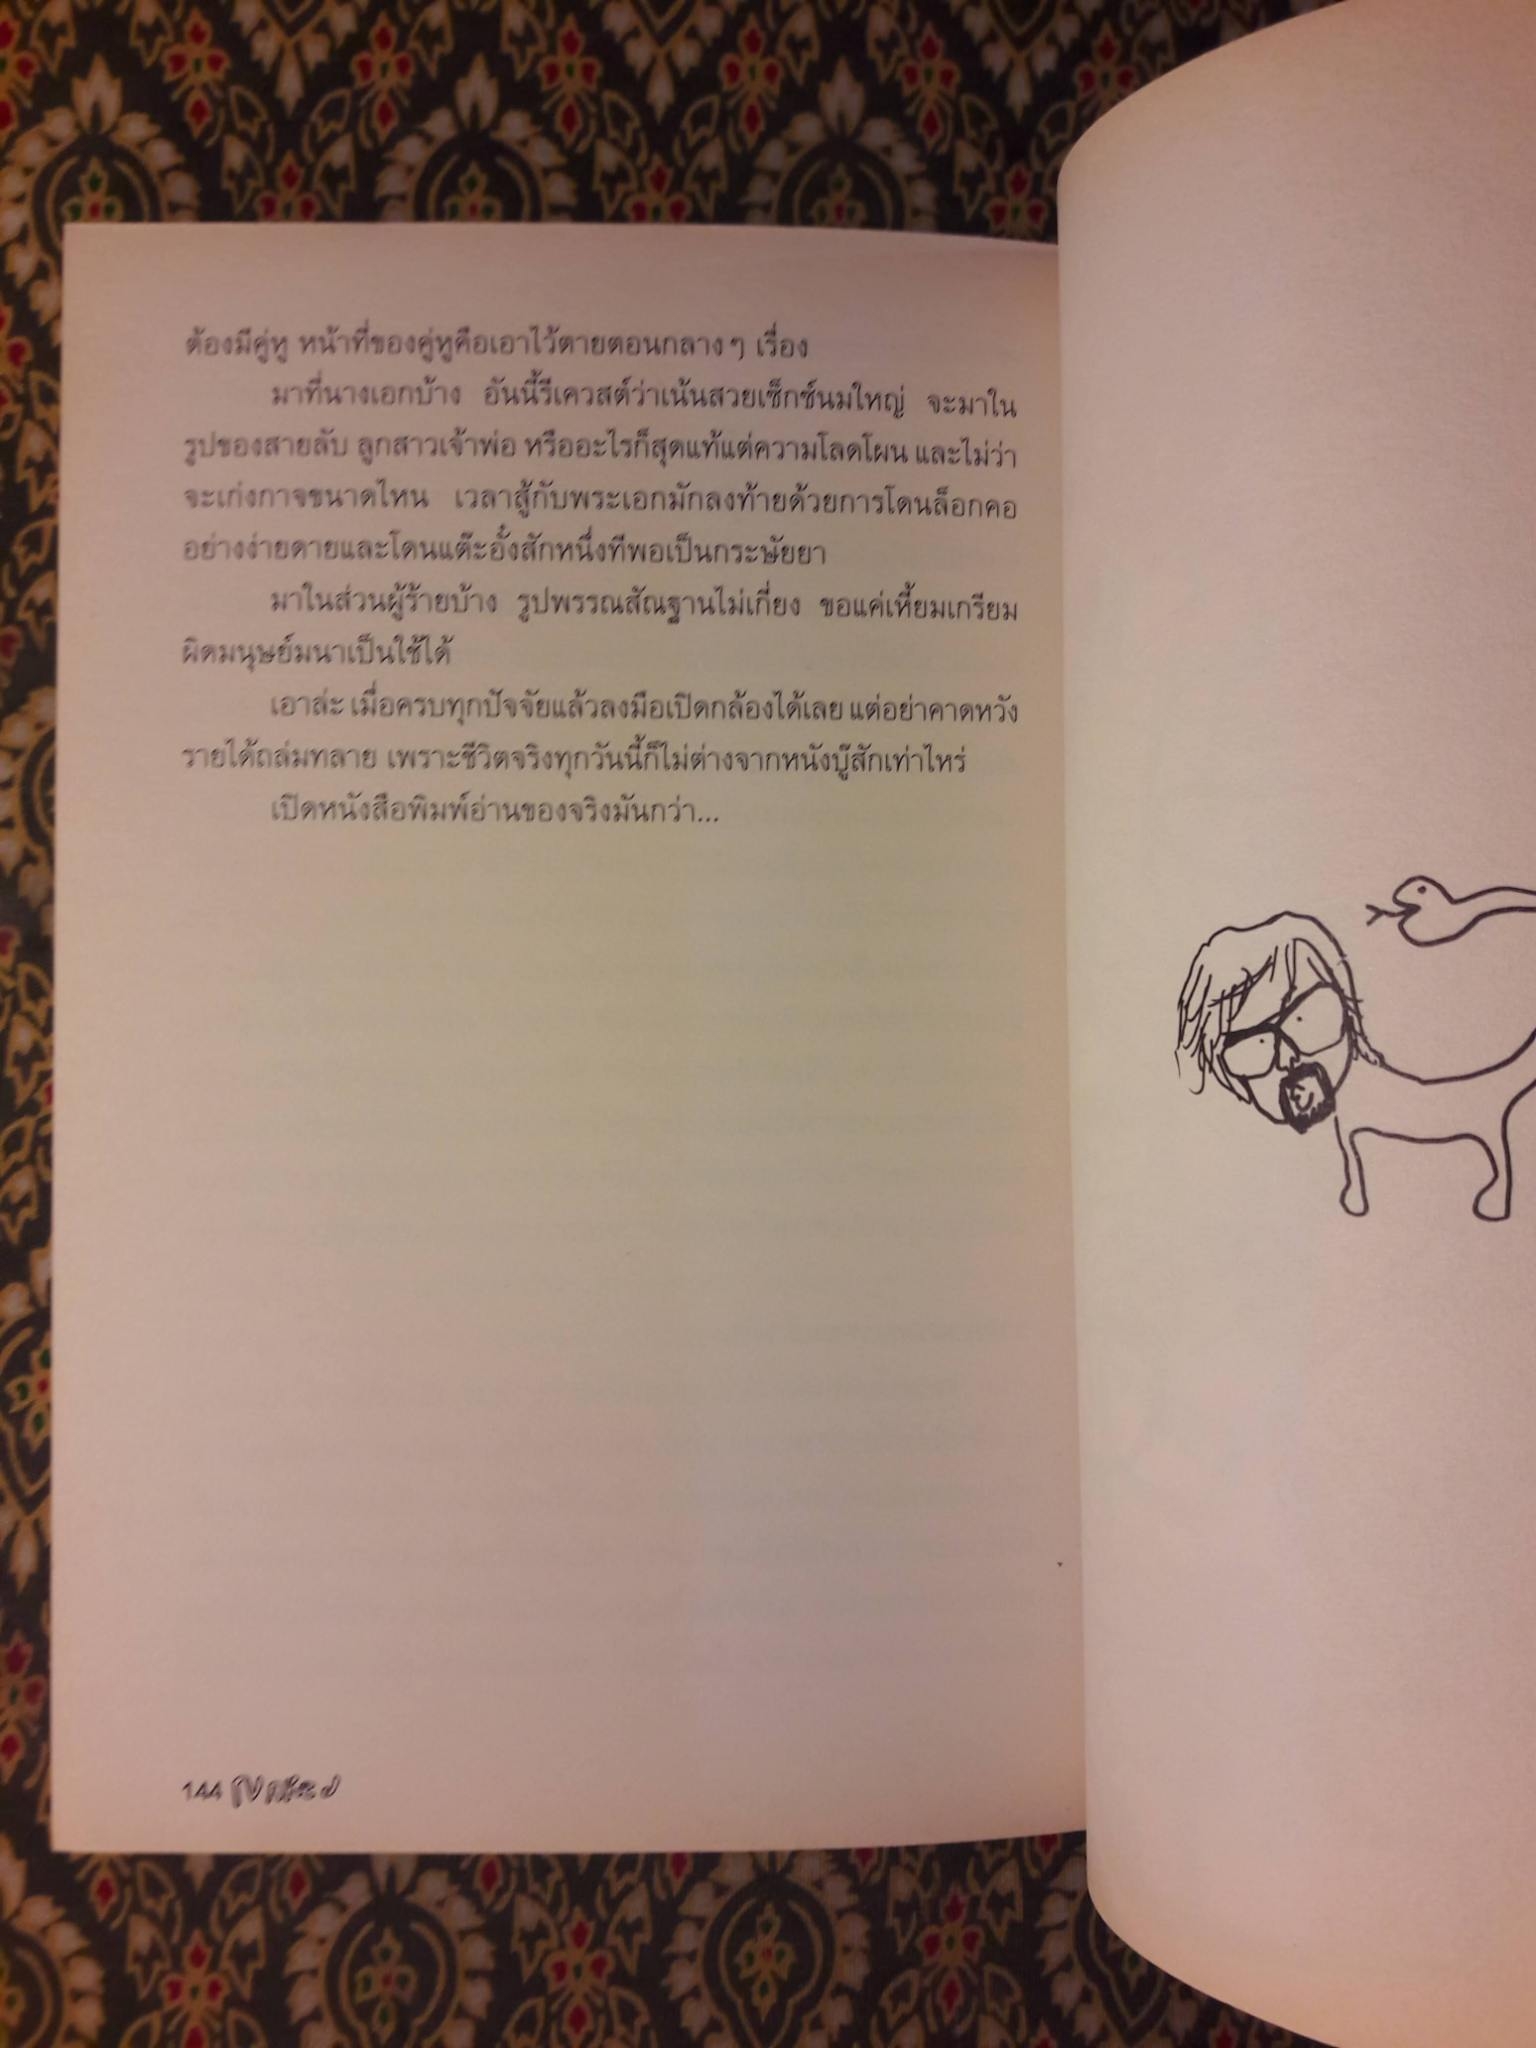 ต้องมีคู่หู หน้าที่ของคู่หูคือเอาไว้ตายตอนกลางๆ เรื่อง
มาที่นางเอกบ้าง อันนี้รีเควสต์ว่าเน้นสวยเซ็กซ์นมใหญ่ จะมาใน
รูปของสายลับ ลูกสาวเจ้าพ่อ หรืออะไรก็สุดแท้แต่ความโลดโผน และไม่ว่า
จะเก่งกาจขนาดไหน เวลาสู้กับพระเอกมักลงท้ายด้วยการโดนล็อกคอ
อย่างง่ายดายและโดนแต๊ะอั๋งสักหนึ่งทีพอเป็นกระษัยยา
มาในส่วนผู้ร้ายบ้าง รูปพรรณสัณฐานไม่เกี่ยง ขอแค่เหี้ยมเกรียม
ผิดมนุษย์มนาเป็นใช้ได้
เอาล่ะ เมื่อครบทุกปัจจัยแล้วลงมือเปิดกล้องได้เลย แต่อย่าคาดหวัง
รายได้ถล่มทลาย เพราะชีวิตจริงทุกวันนี้ก็ไม่ต่างจากหนังบู๊สักเท่าไหร่
เปิดหนังสือพิมพ์อ่านของจริงมันกว่า...
144